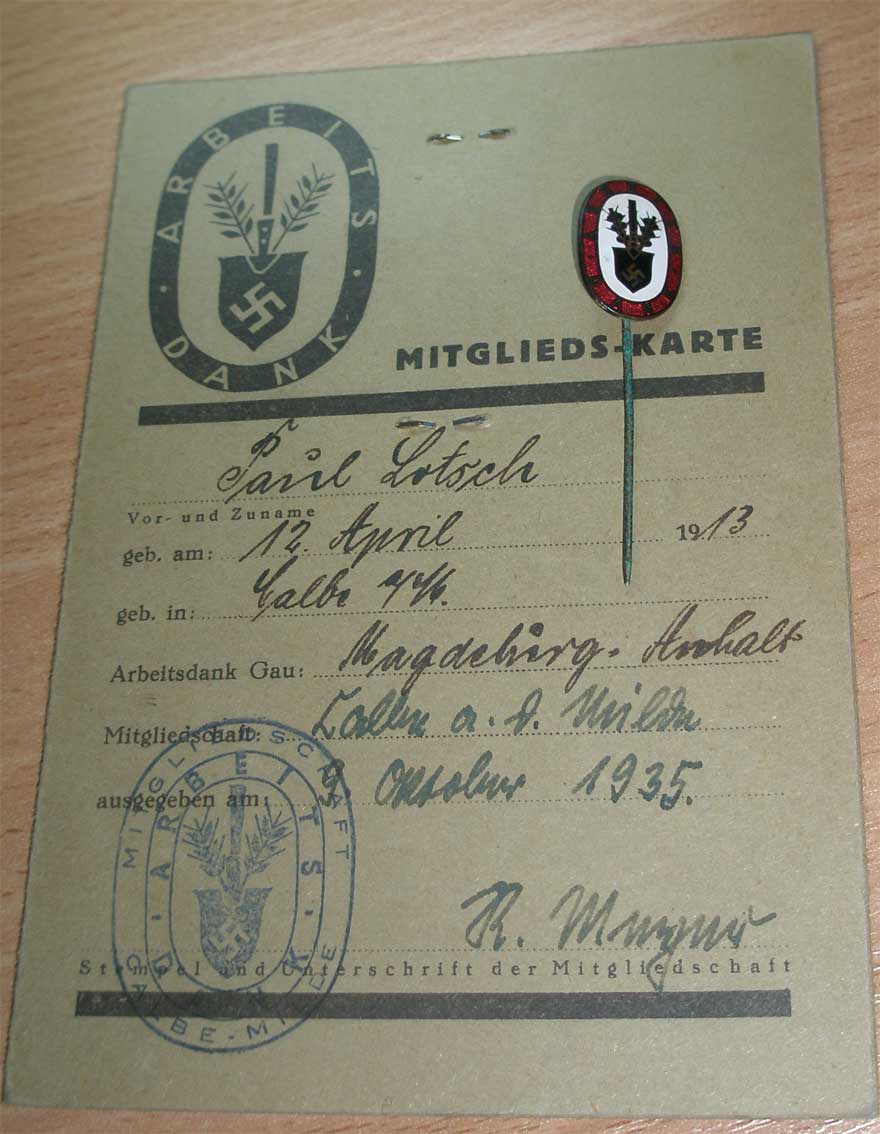 ARBEITS
DANK
MITGLIEDS-KARTE
Paul Lotsch
Vor- und Zuname
geb. am: 12. April 1913
geb. in: Calbe
Arbeitsdank Gau: Magdeburg-Anhalt
Mitgliedschaft: Calbe a. d. Milde
ausgegeben am: 9. Oktober 1935.
MITGLIEDSCHAFT
ARBEITS
DANK
CALBE-MILDE
R.
Stempel und Unterschrift der Mitgliedschaft